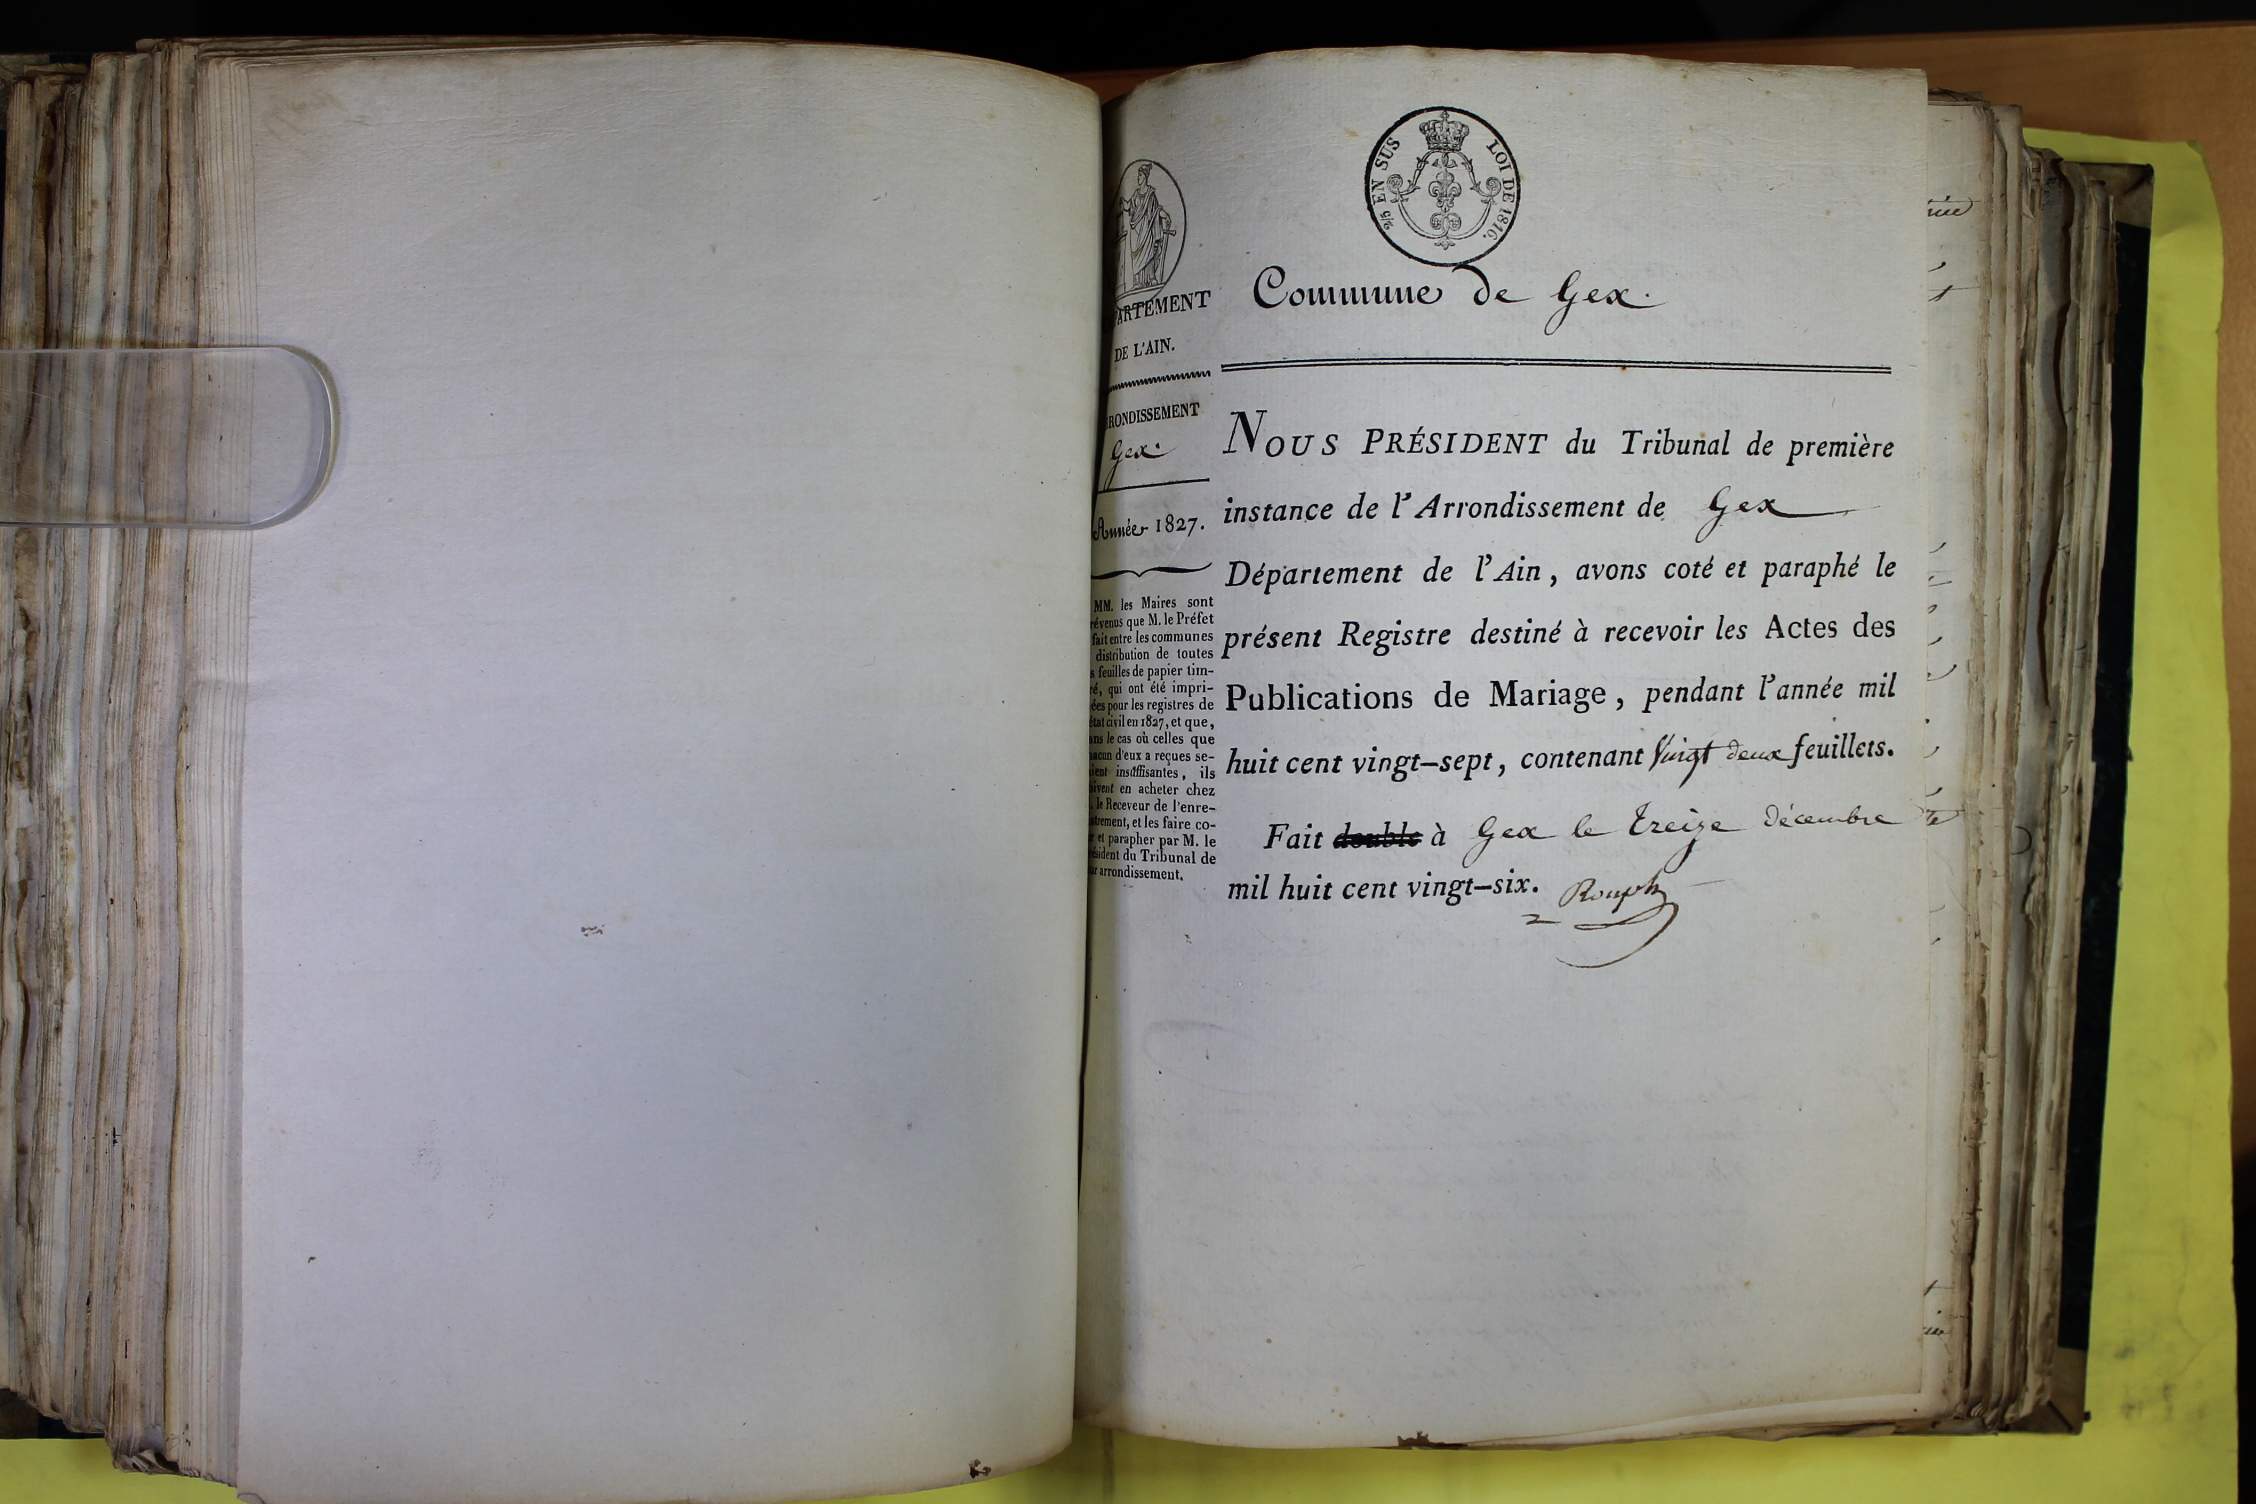 2/5 EN SUS LOI DE 1816.
Commune de Gex.
PARTEMENT
DE L'AIN.
RONDISSEMENT
Gex.
Année 1827.
MM. les Maires sont
révenus que M. le Préfet
fait entre les communes
distribution de toutes
s feuilles de papier tim-
ré, qui ont été impri-
ées pour les registres de
état civil en 1827, et que,
ans le cas où celles que
hacun d'eux a reçues se-
ient insuffisantes, ils
oivent en acheter chez
. le Receveur de l'enre-
strement, et les faire co-
er et parapher par M. le
résident du Tribunal de
ur arrondissement.
NOUS PRÉSIDENT du Tribunal de première
instance de l'Arrondissement de Gex
Département de l'Ain, avons coté et paraphé le
présent Registre destiné à recevoir les Actes des
Publications de Mariage, pendant l'année mil
huit cent vingt-sept, contenant Vingt deux feuillets.
Fait double à Gex le treize décembre
mil huit cent vingt-six. Rouph